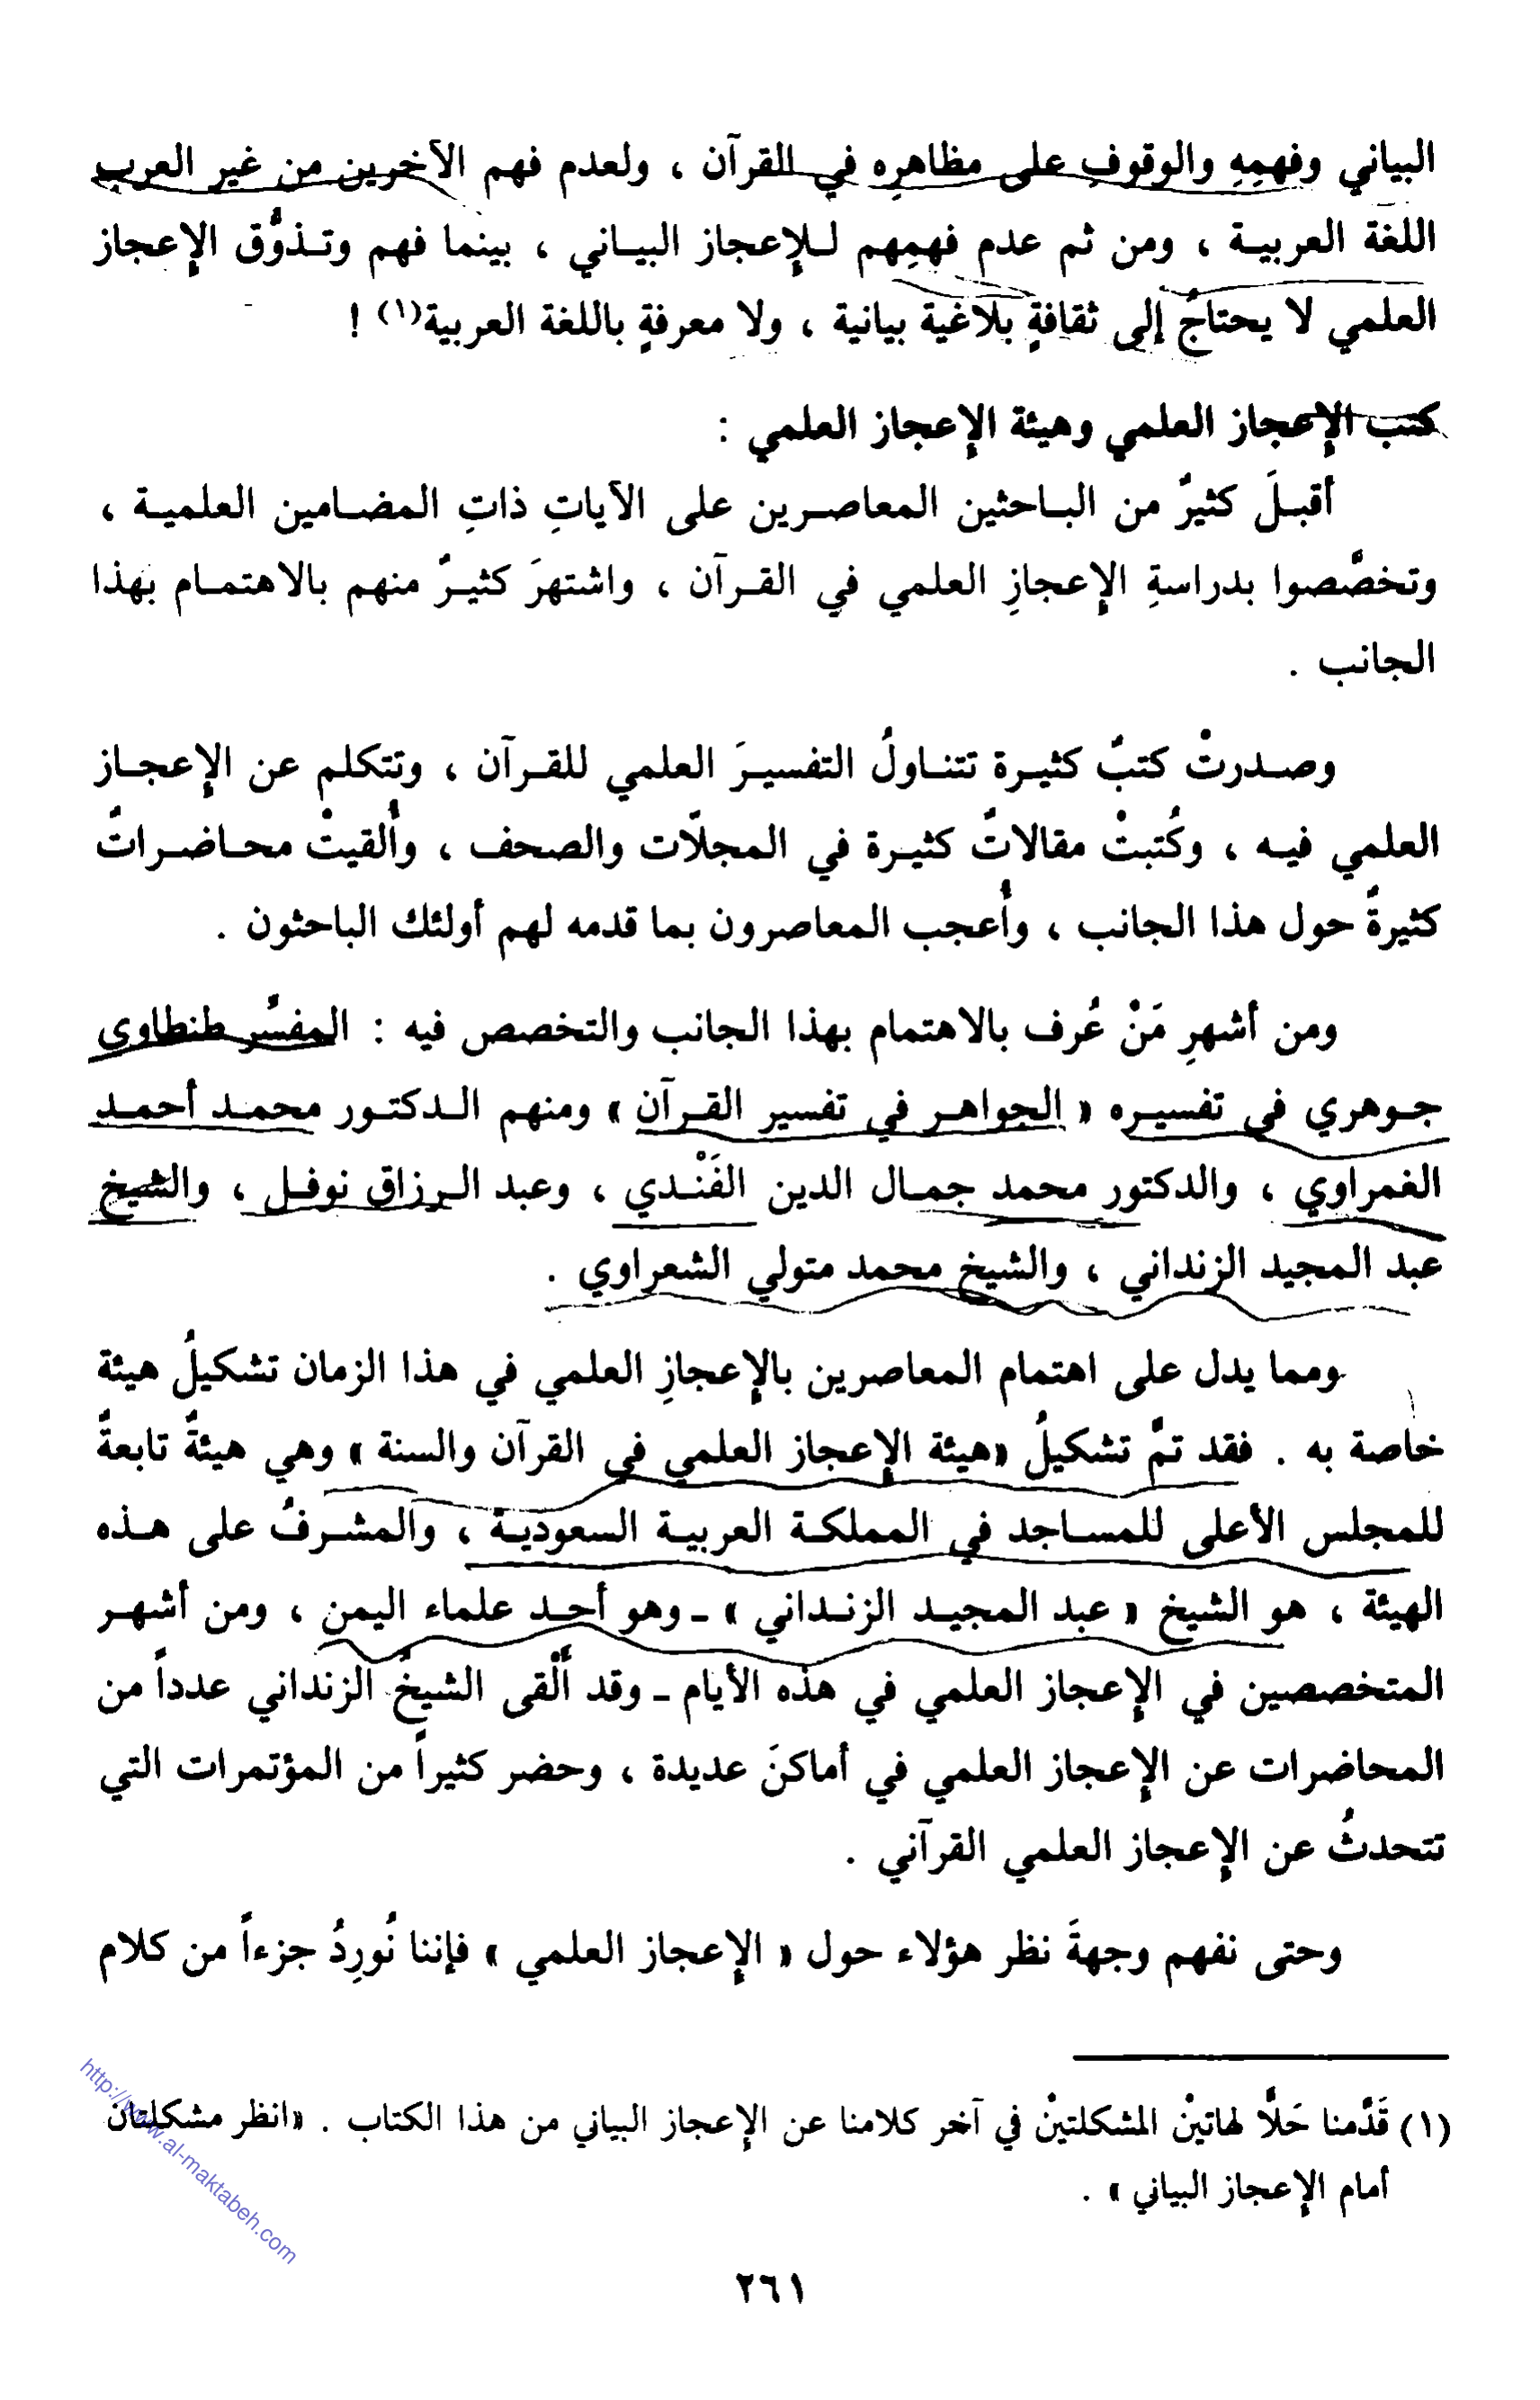 البياني وفهمِهِ والوقوفِ على مظاهرِه في القرآن ، ولعدم فهم الآخرين من غير العرب
اللغة العربية ، ومن ثم عدم فهمِهم للإعجاز البياني ، بينما فهم وتذوُّق الإعجاز
العلمي لا يحتاجُ إلى ثقافةٍ بلاغية بيانية ، ولا معرفةٍ باللغة العربية(١) !
كتب الإعجاز العلمي وهيئة الإعجاز العلمي :
أقبلَ كثيرٌ من الباحثين المعاصرين على الآياتِ ذاتِ المضامين العلمية ،
وتخصَّصوا بدراسةِ الإعجازِ العلمي في القرآن ، واشتهرَ كثيرٌ منهم بالاهتمام بهذا
الجانب .
وصدرتْ كتبٌ كثيرة تتناولُ التفسيرَ العلمي للقرآن ، وتتكلم عن الإعجاز
العلمي فيه ، وكُتبتْ مقالاتٌ كثيرة في المجلّات والصحف ، وأُلقيتْ محاضراتٌ
كثيرةٌ حول هذا الجانب ، وأُعجب المعاصرون بما قدمه لهم أولئك الباحثون .
ومن أشهرِ مَنْ عُرف بالاهتمام بهذا الجانب والتخصص فيه : المفسِّر طنطاوي
جوهري في تفسيره « الجواهر في تفسير القرآن » ومنهم الدكتور محمد أحمد
الغمراوي ، والدكتور محمد جمال الدين الفَنْدي ، وعبد الرزاق نوفل ، والشيخ
عبد المجيد الزنداني ، والشيخ محمد متولي الشعراوي .
ومما يدل على اهتمام المعاصرين بالإعجازِ العلمي في هذا الزمان تشكيلُ هيئة
خاصة به . فقد تمَّ تشكيلُ «هيئة الإعجاز العلمي في القرآن والسنة » وهي هيئةٌ تابعةٌ
للمجلس الأعلى للمساجد في المملكة العربية السعودية ، والمشرفُ على هذه
الهيئة ، هو الشيخ « عبد المجيد الزنداني » ـ وهو أحد علماء اليمن ، ومن أشهر
المتخصصين في الإعجاز العلمي في هذه الأيام ـ وقد ألْقى الشيخُ الزنداني عدداً من
المحاضرات عن الإعجاز العلمي في أماكنَ عديدة ، وحضر كثيراً من المؤتمرات التي
تتحدثُ عن الإعجاز العلمي القرآني .
وحتى نفهم وجهةَ نظر هؤلاء حول « الإعجاز العلمي » فإننا نُورِدُ جزءاً من كلام
(١) قَدَّمنا حَلًّا لهاتينْ المشكلتينْ في آخر كلامنا عن الإعجاز البياني من هذا الكتاب . «انظر مشكلتان
أمام الإعجاز البياني » .
http://www.al-maktabeh.com
٢٦١